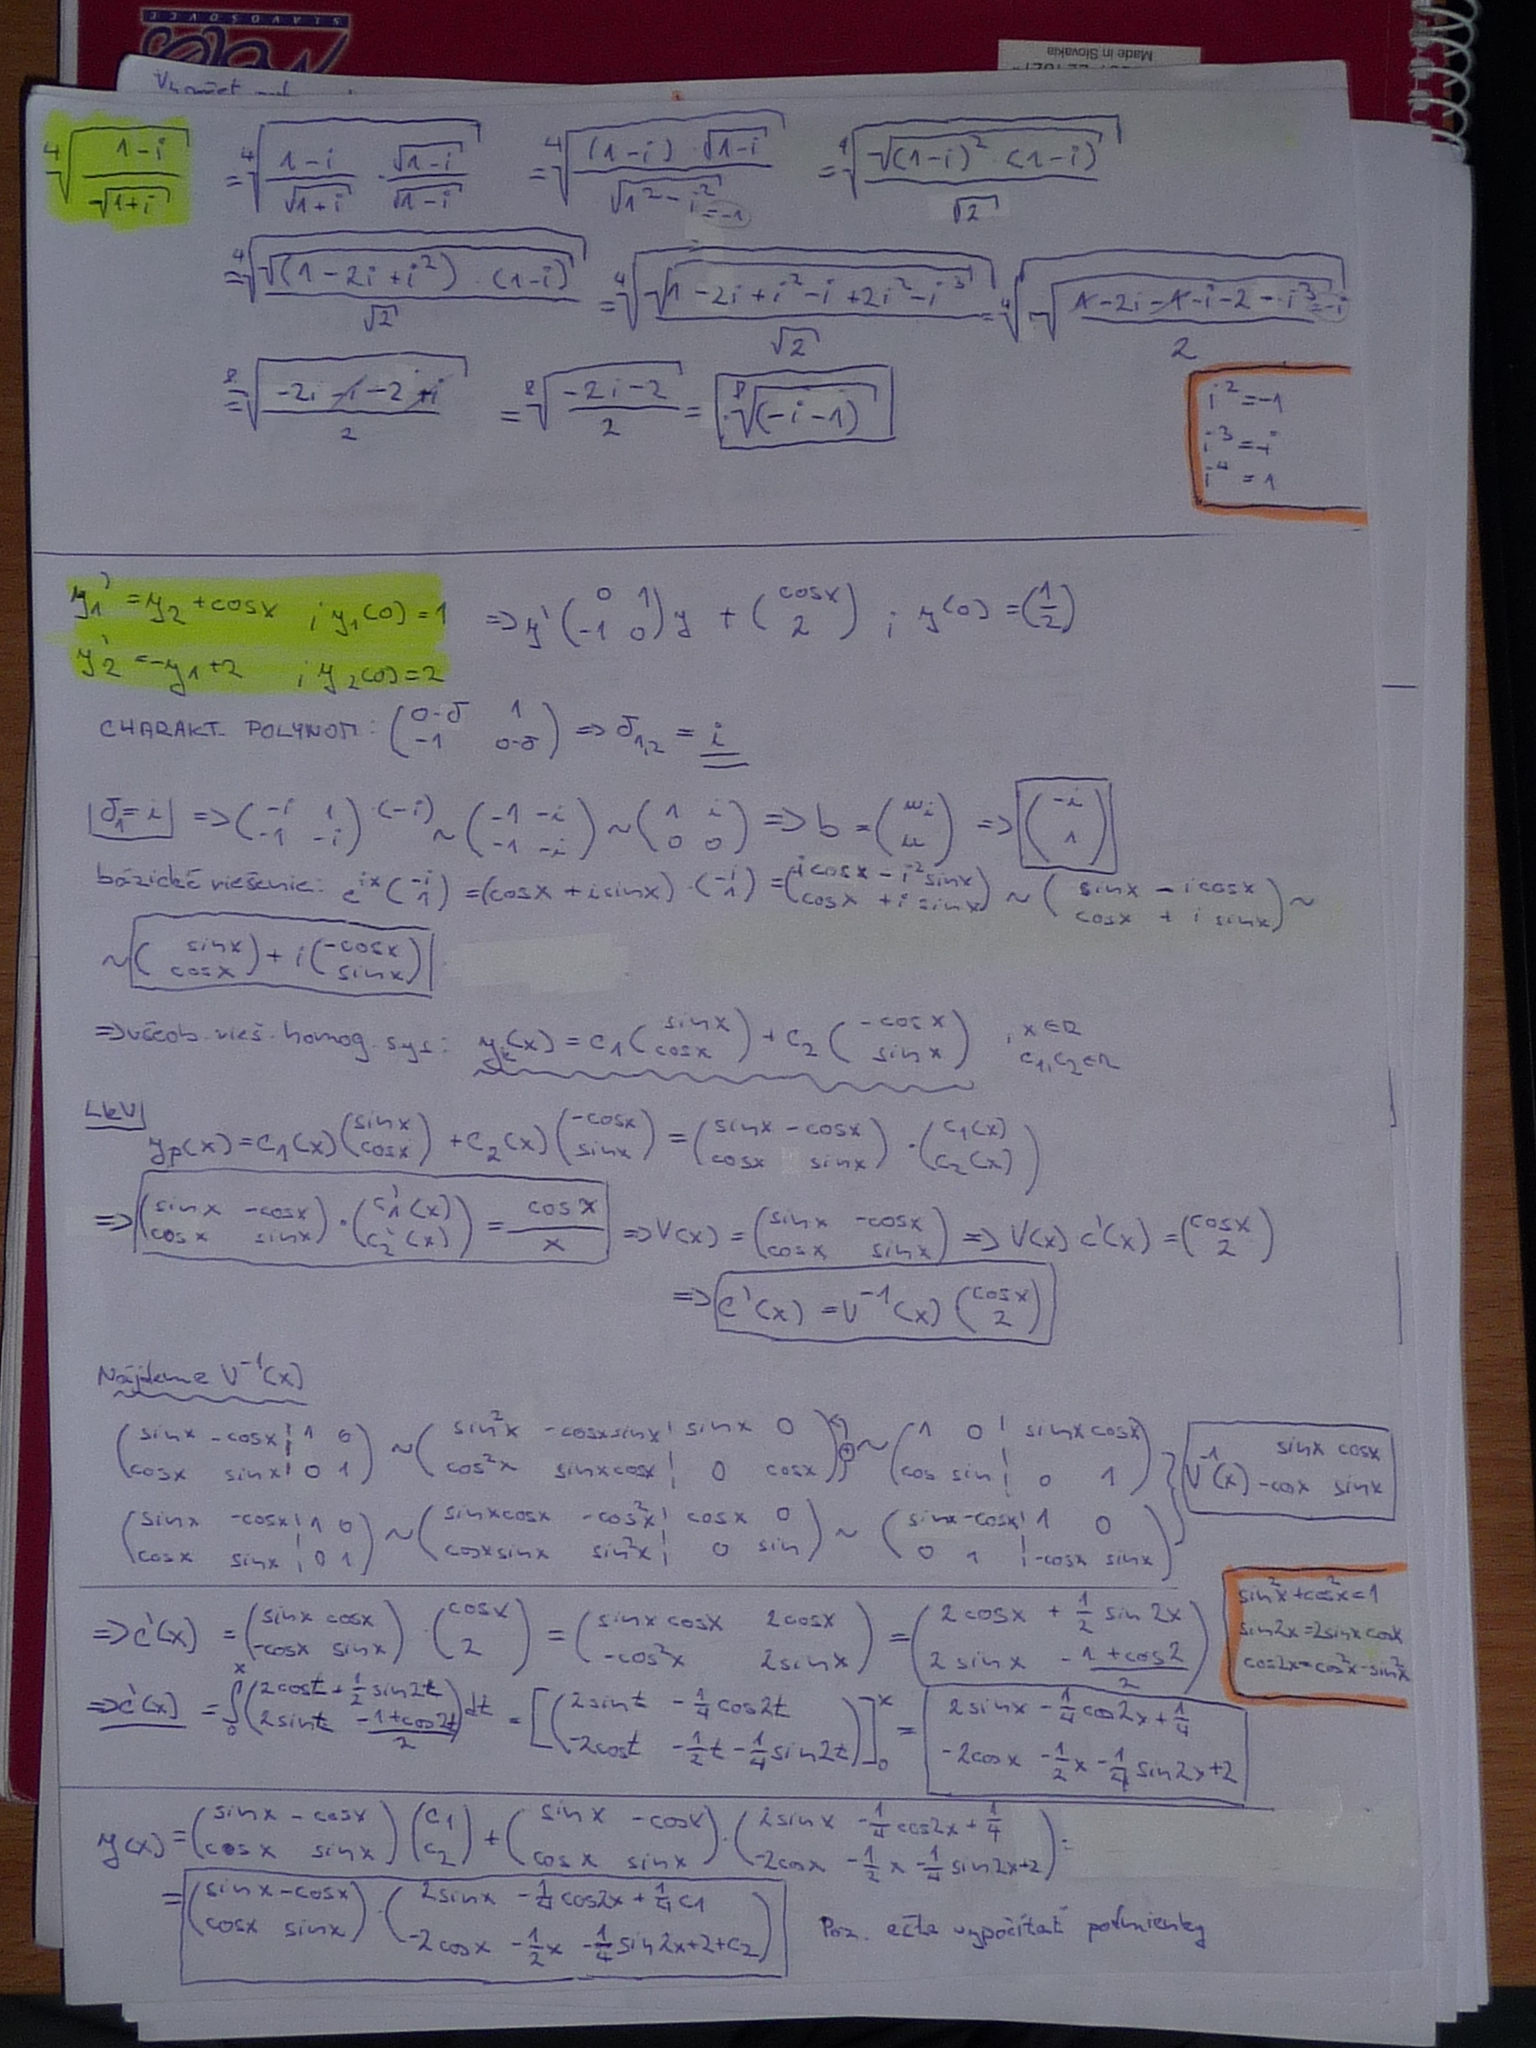 SLAVOŠOVCE
Made in Slovakia
⁴√((1-i)/√(1+i)) = ⁴√((1-i)/√(1+i) · √(1-i)/√(1-i)) = ⁴√((1-i)·√(1-i)/√(1²-i²)) =-1 = ⁴√(√((1-i)²·(1-i))/√2)
= ⁴√(√((1-2i+i²)·(1-i))/√2) = ⁴√(√(1-2i+i²-i+2i²-i³)/√2) = ⁴√(√((1-2i-1-i-2-i³)/2)) =-i
= ⁸√((-2i-i-2+i)/2) = ⁸√((-2i-2)/2) = ⁸√(-i-1)
i² = -1
i³ = -i
i⁴ = 1
y1' = y2 + cosx ; y1(0) = 1 => y' (0 1 / -1 0) y + (cosx / 2) ; y(0) = (1 / 2)
y2' = -y1 + 2 ; y2(0) = 2
CHARAKT. POLYNOM: (0-δ 1 / -1 0-δ) => δ1,2 = i
δ1 = i => (-i 1 / -1 -i) ·(-i) ~ (-1 -i / -1 -i) ~ (1 i / 0 0) => b = (ui / u) => (-i / 1)
bázické riešenie: e^ix (-i / 1) = (cosx + isinx) · (-i / 1) = (icosx - i²sinx / cosx + i sinx) ~ (sinx - icosx / cosx + i sinx) ~
~ (sinx / cosx) + i (-cosx / sinx)
=> všeob. rieš. homog. sys: y(x) = c1 (sinx / cosx) + c2 (-cosx / sinx) , x∈R c1,c2∈R
yp(x) = c1(x) (sinx / cosx) + c2(x) (-cosx / sinx) = (sinx -cosx / cosx sinx) · (c1(x) / c2(x))
=> (sinx -cosx / cosx sinx) · (c1'(x) / c2'(x)) = cosx / x => V(x) = (sinx -cosx / cosx sinx) => V(x) c'(x) = (cosx / 2)
=> c'(x) = V⁻¹(x) (cosx / 2)
Nájdeme V⁻¹(x)
(sinx -cosx ¦ 1 0 / cosx sinx ¦ 0 1) ~ (sin²x -cosxsinx ¦ sinx 0 / cos²x sinxcosx ¦ 0 cosx) ⊕ ~ (1 0 ¦ sinx cosx / cos sin ¦ 0 1)
V⁻¹(x) sinx cosx / -cosx sinx
(sinx -cosx ¦ 1 0 / cosx sinx ¦ 0 1) ~ (sinxcosx -cos²x ¦ cosx 0 / cosxsinx sin²x ¦ 0 sin) ~ (sinx -cosx ¦ 1 0 / 0 1 ¦ -cosx sinx)
=> c'(x) = (sinx cosx / -cosx sinx) · (cosx / 2) = (sinx cosx 2cosx / -cos²x 2sinx) = (2cosx + 1/2 sin2x / 2sinx - (1+cos2)/2)
sin²x+cos²x=1
sin2x=2sinx cosx
cos2x=cos²x-sin²x
=> c'(x) = ∫₀ˣ (2cost + 1/2 sin2t / 2sint - (1+cos2t)/2) dt = [(2sint - 1/4 cos2t / -2cost - 1/2 t - 1/4 sin2t)]₀ˣ = 2sinx - 1/4 cos2x + 1/4 / -2cosx - 1/2 x - 1/4 sin2x + 2
y(x) = (sinx -cosx / cosx sinx) (c1 / c2) + (sinx -cosx / cosx sinx) · (2sinx - 1/4 cos2x + 1/4 / -2cosx - 1/2 x - 1/4 sin2x + 2) =
= (sinx -cosx / cosx sinx) · (2sinx - 1/4 cos2x + 1/4 c1 / -2cosx - 1/2 x - 1/4 sin2x + 2 + c2) Poz. ešte vypočítať podmienky